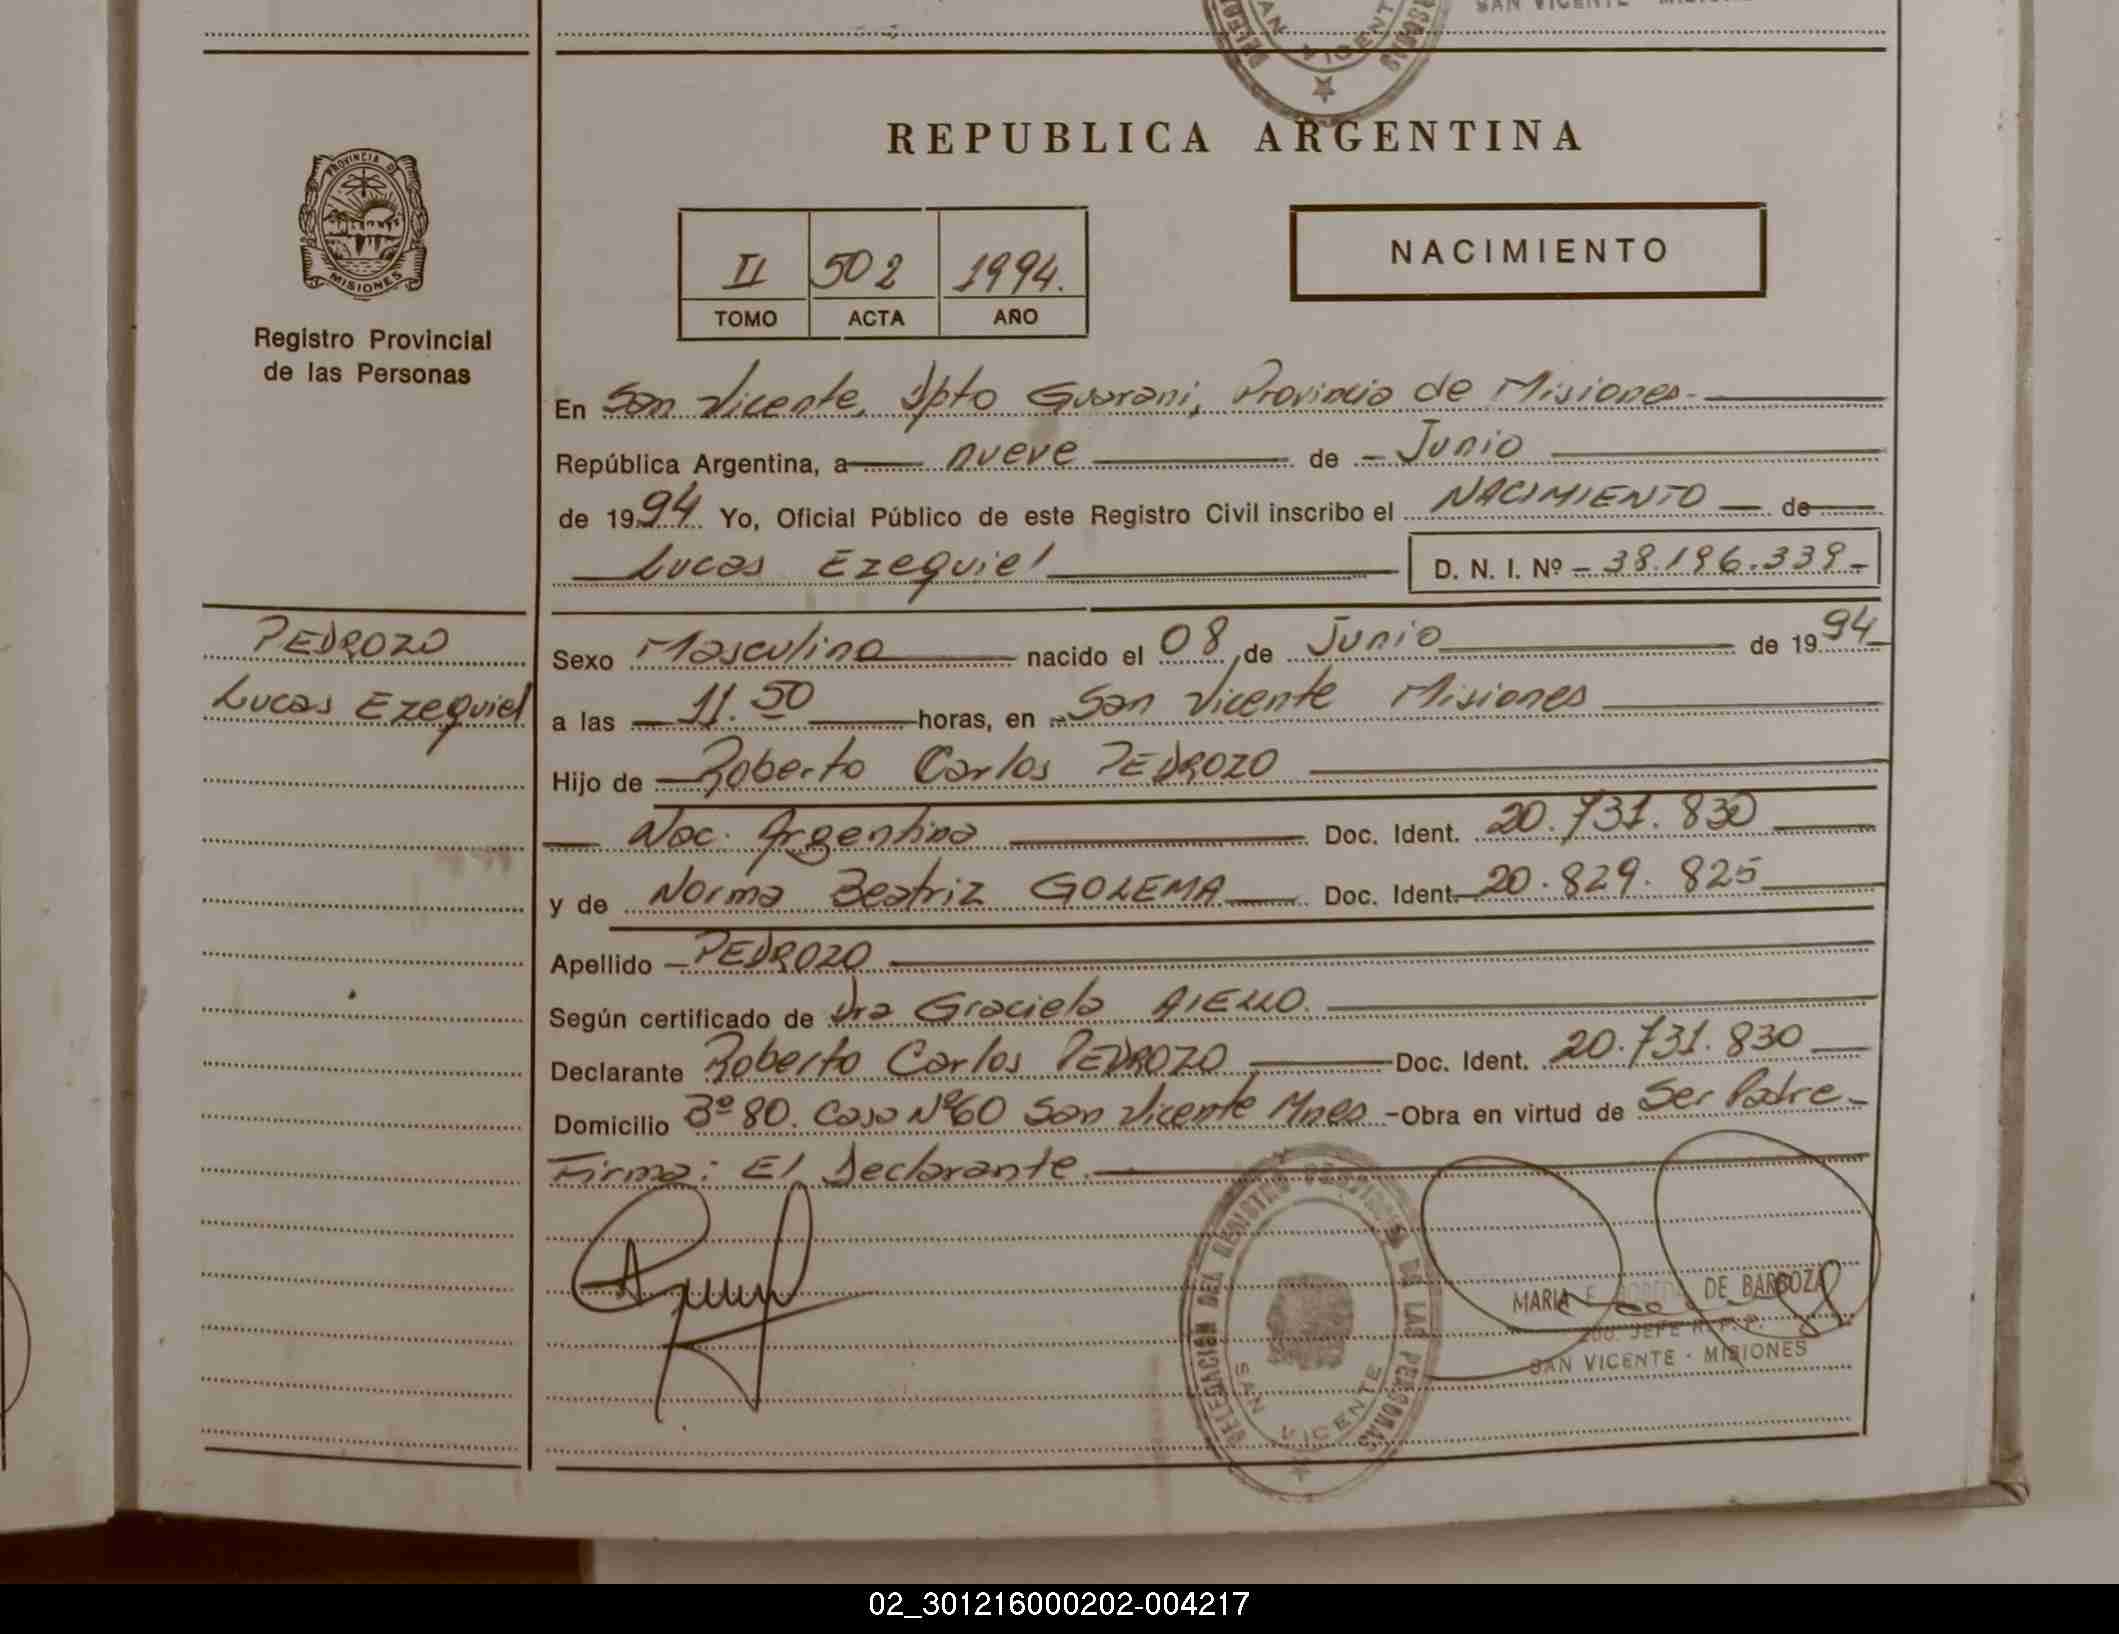 SAN VICENTE - MISIONES
SAN VICENTE
REPUBLICA ARGENTINA
PROVINCIA DE
MISIONES
Registro Provincial
de las Personas
NACIMIENTO
II 502 1994.
TOMO ACTA AÑO
En San Vicente, Dpto Guarani, Provincia de Misiones-
República Argentina, a nueve de - Junio
de 1994 Yo, Oficial Público de este Registro Civil inscribo el NACIMIENTO de
Lucas Ezequiel D. N. I. Nº - 38.196.339-
PEDROZO
Lucas Ezequiel
Sexo Masculino nacido el 08 de Junio de 1994
a las 11.50 horas, en San Vicente Misiones
Hijo de Roberto Carlos PEDROZO
Nac. Argentina Doc. Ident. 20.731.830
y de Norma Beatriz GOLEMA Doc. Ident. 20.829.825
Apellido PEDROZO
Según certificado de Dra Graciela AIELLO.
Declarante Roberto Carlos PEDROZO Doc. Ident. 20.731.830
Domicilio Bº 80. Casa Nº60 San Vicente Mnes - Obra en virtud de Ser Padre-
Firma: El Declarante.
DELEGACION DEL REGISTRO DE LAS PERSONAS
SAN VICENTE
MARIA DE BARBOZA
JEFE R. P. P.
SAN VICENTE - MISIONES
02_301216000202-004217